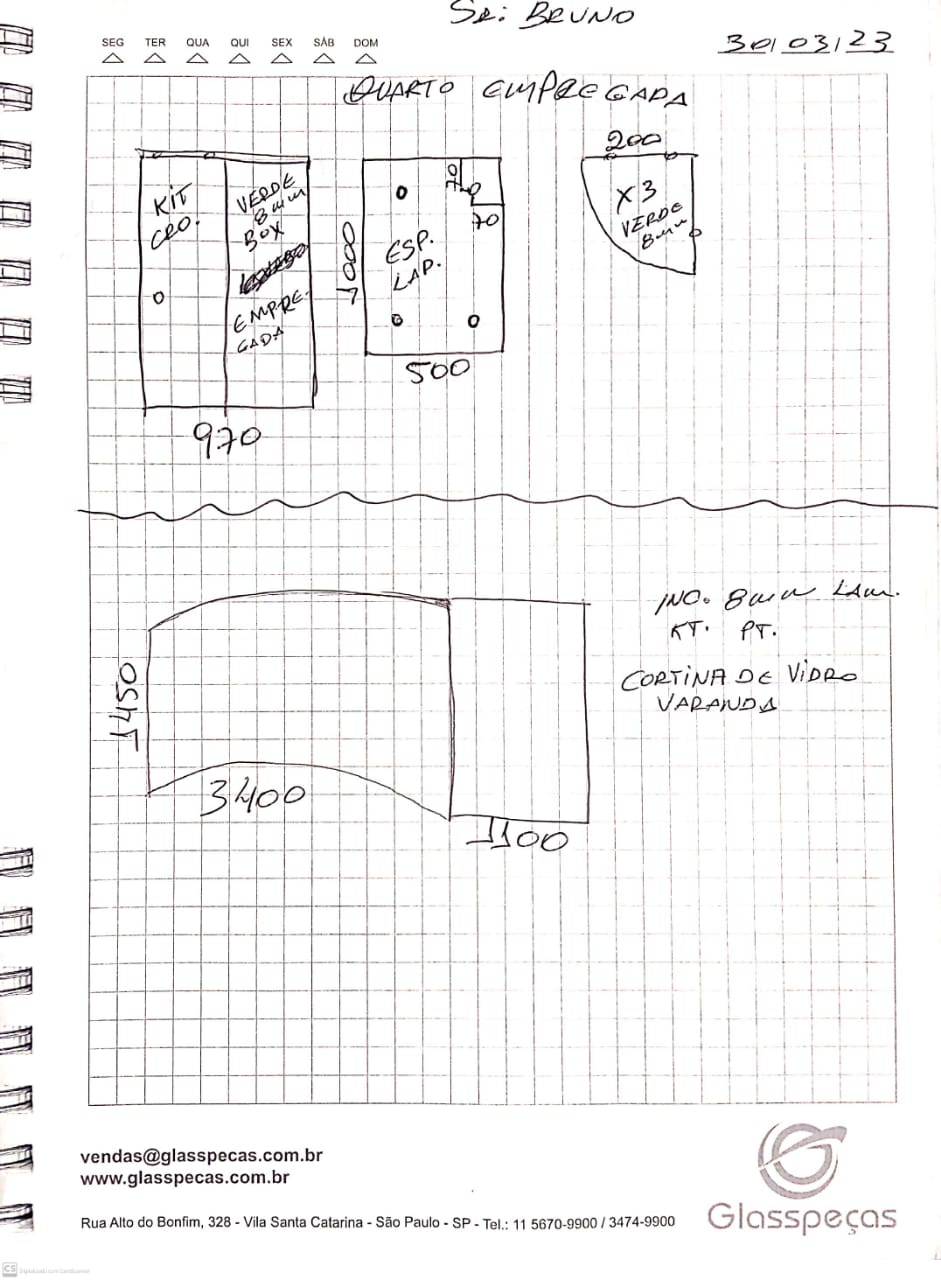 Sr: BRUNO
SEG TER QUA QUI SEX SÁB DOM
30/03/23
QUARTO EMPREGADA
KIT
CRO.
VERDE
8mm
BOX
EMPRE-
GADA
970
1000
ESP.
LAP.
70
70
500
200
X3
VERDE
8mm
1450
3400
1100
INC. 8mm LAM.
KT. PT.
CORTINA DE VIDRO
VARANDA
vendas@glasspecas.com.br
www.glasspecas.com.br
Rua Alto do Bonfim, 328 - Vila Santa Catarina - São Paulo - SP - Tel.: 11 5670-9900 / 3474-9900
Glasspeças
CS Digitalizado com CamScanner